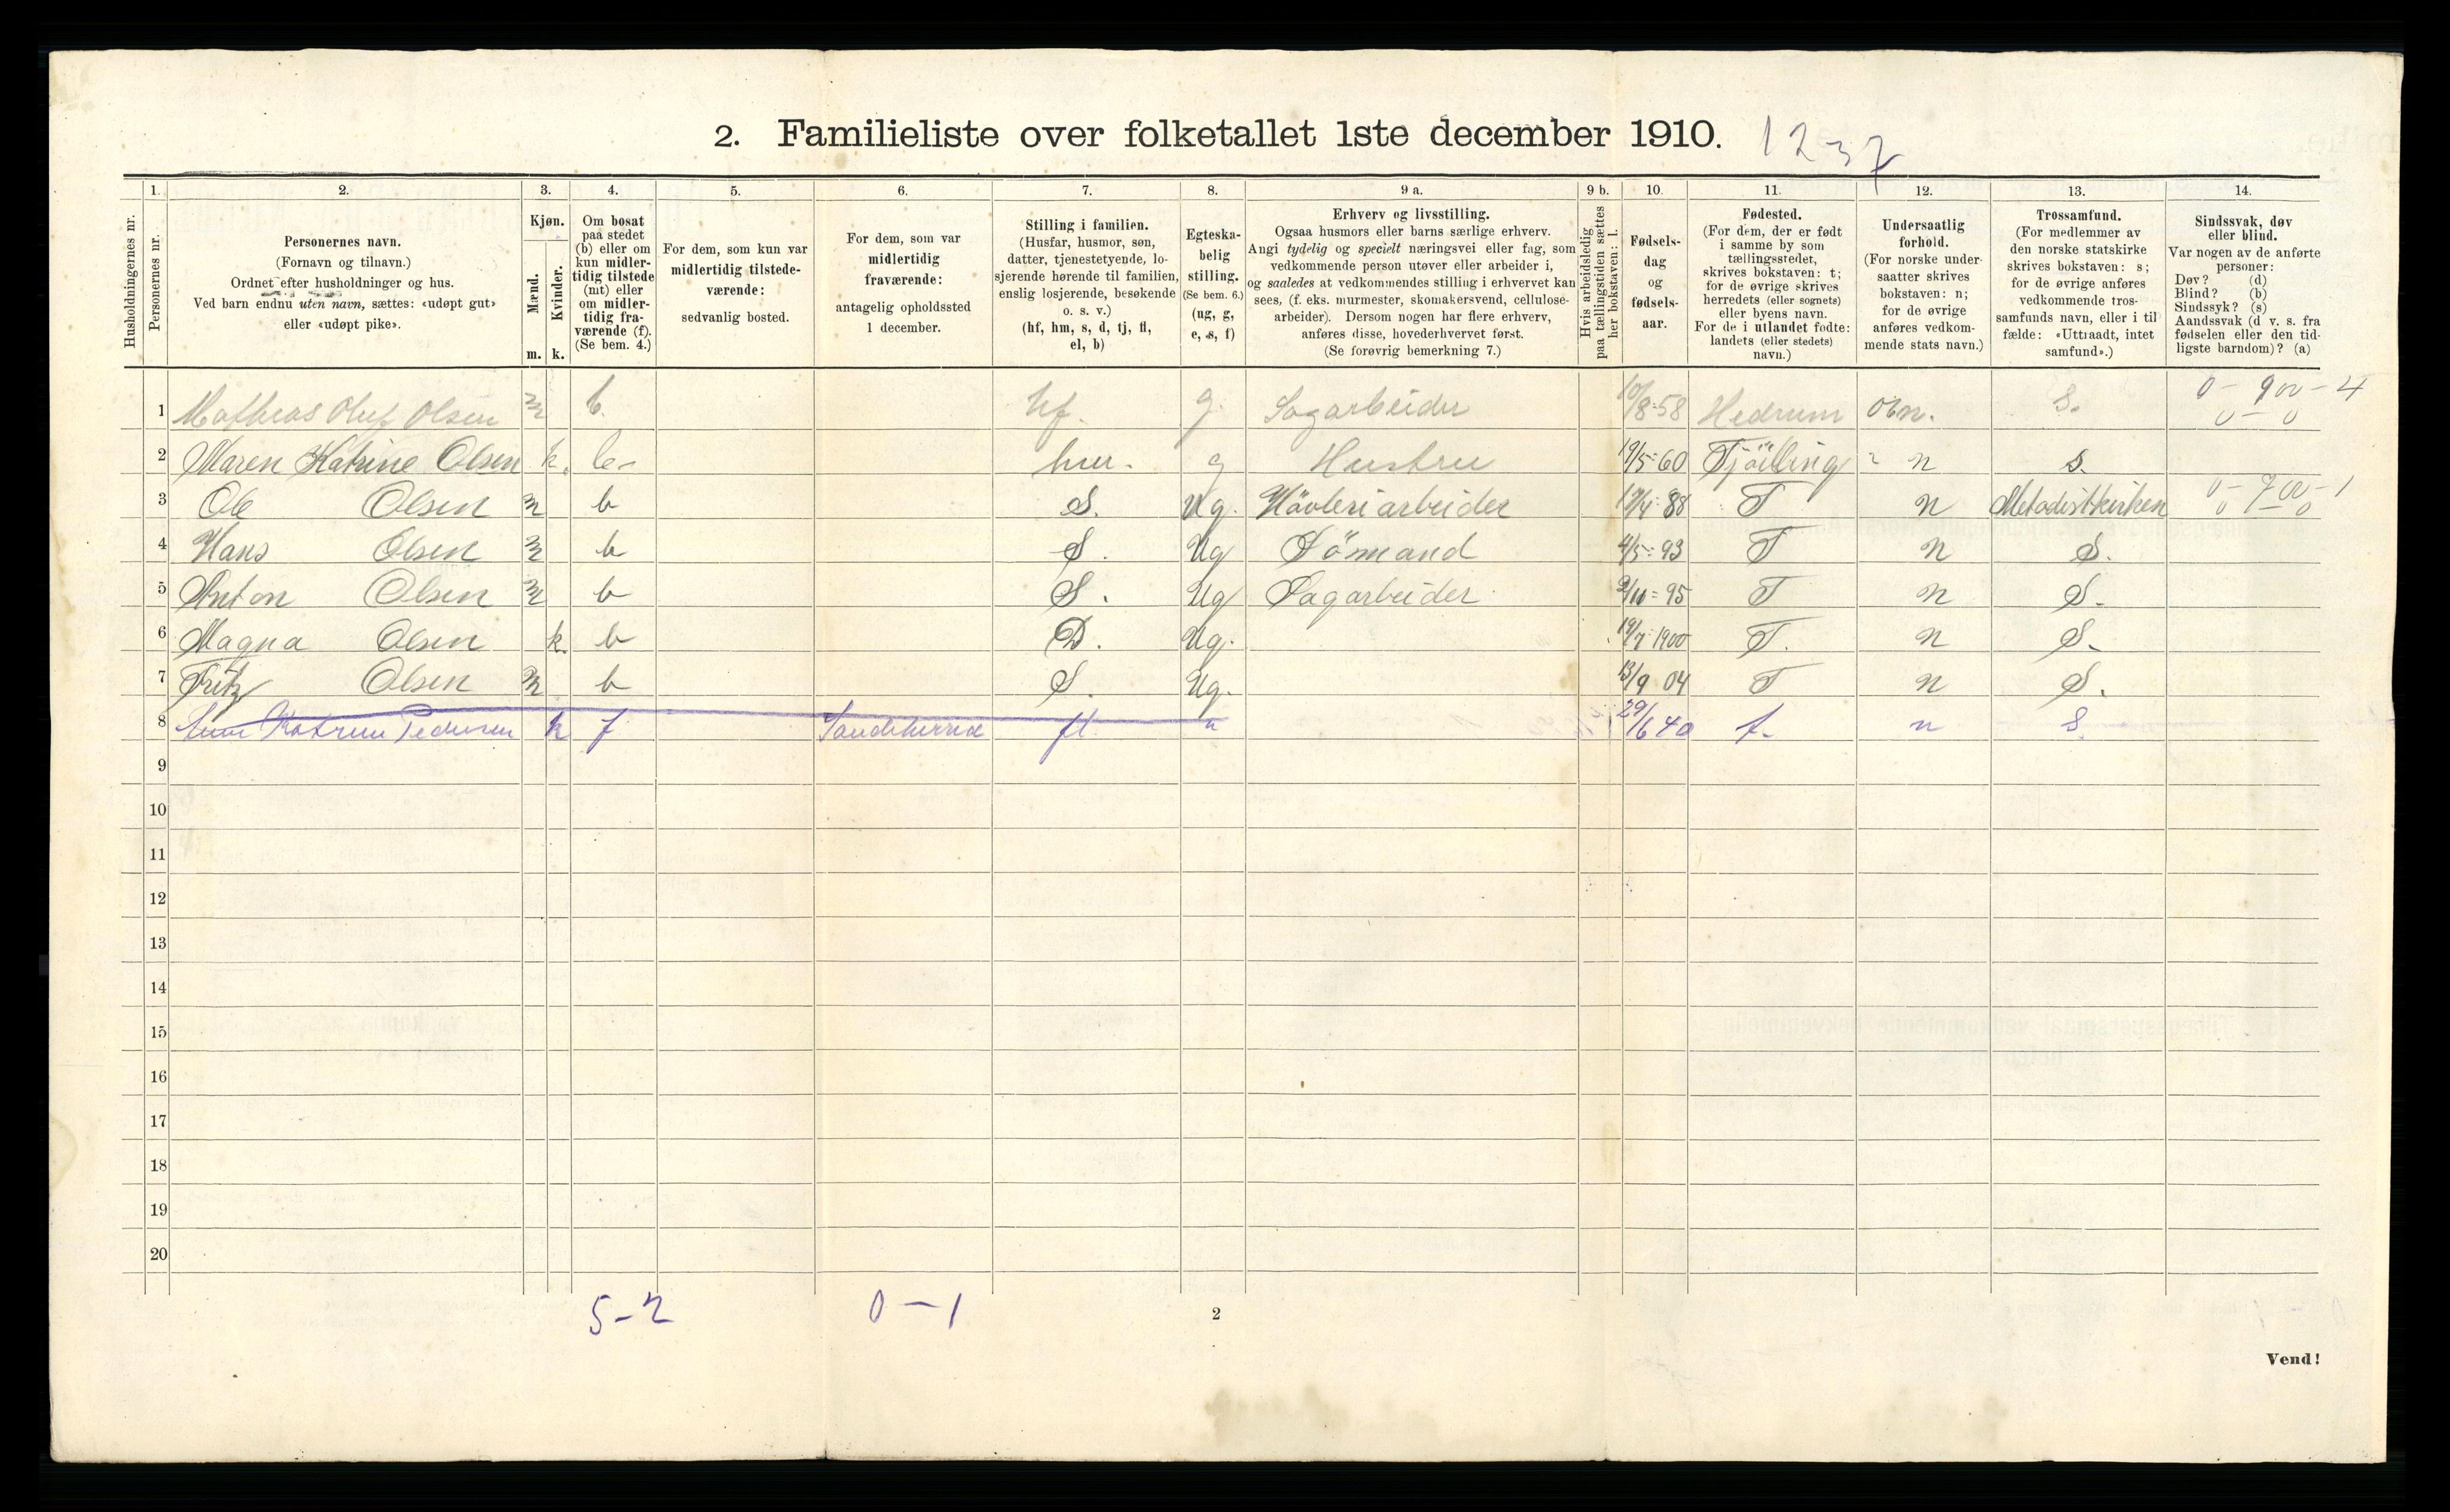 2. Familieliste over folketallet 1ste december 1910.
1237
Husholdningernes nr.
1. Personernes nr.
2. Personernes navn. (Fornavn og tilnavn.) Ordnet efter husholdninger og hus. Ved barn endnu uten navn, sættes: «udøpt gut» eller «udøpt pike».
3. Kjøn. Mænd. m. Kvinder. k.
4. Om bosat paa stedet (b) eller om kun midlertidig tilstede (mt) eller om midlertidig fraværende (f). (Se bem. 4.)
5. For dem, som kun var midlertidig tilstedeværende: sedvanlig bosted.
6. For dem, som var midlertidig fraværende: antagelig opholdssted 1 december.
7. Stilling i familien. (Husfar, husmor, søn, datter, tjenestetyende, losjerende hørende til familien, enslig losjerende, besøkende o. s. v.) (hf, hm, s, d, tj, fl, el, b)
8. Egteskabelig stilling. (Se bem. 6.) (ug, g, e, s, f)
9 a. Erhverv og livsstilling. Ogsaa husmors eller barns særlige erhverv. Angi tydelig og specielt næringsvei eller fag, som vedkommende person utøver eller arbeider i, og saaledes at vedkommendes stilling i erhvervet kan sees, (f. eks. murmester, skomakersvend, cellulosearbeider). Dersom nogen har flere erhverv, anføres disse, hovederhvervet først. (Se forøvrig bemerkning 7.)
9 b. Hvis arbeidsledig paa tællingstiden sættes her bokstaven: l.
10. Fødselsdag og fødselsaar.
11. Fødested. (For dem, der er født i samme by som tællingsstedet, skrives bokstaven: t; for de øvrige skrives herredets (eller sognets) eller byens navn. For de i utlandet fødte: landets (eller stedets) navn.)
12. Undersaatlig forhold. (For norske undersaatter skrives bokstaven: n; for de øvrige anføres vedkommende stats navn.)
13. Trossamfund. (For medlemmer av den norske statskirke skrives bokstaven: s; for de øvrige anføres vedkommende trossamfunds navn, eller i tilfælde: «Uttraadt, intet samfund».)
14. Sindssvak, døv eller blind. Var nogen av de anførte personer: Døv? (d) Blind? (b) Sindssyk? (s) Aandssvak (d v. s. fra fødselen eller den tidligste barndom)? (a)
1 Mathias Oluf Olsen m b. hf. g. Sagarbeider 10/8-58 Hedrum n. s. 0-900-4 0-0
2 Maren Katrine Olsen k. b hm. g Hustru 19/5-60 Tjölling n s.
3 Ole Olsen m b S. Ug. Hövleriarbeider 88 T n Metodistkirken 0-700-1 0-0
4 Hans Olsen m b S. Ug Sömand 4/5-93 T n S.
5 Anton Olsen m b S. Ug Sagarbeider 95 T n S.
6 Magna Olsen k. b D. Ug. 19/7 1900 T. n S.
7 Fritz Olsen m b S. Ug. 13/9 04 T n S.
8 Katrine Pedersen k f Sandeherred fl 29/6 40 t. n S.
9
10
11
12
13
14
15
16
17
18
19
20
5-2 0-1
2
Vend!